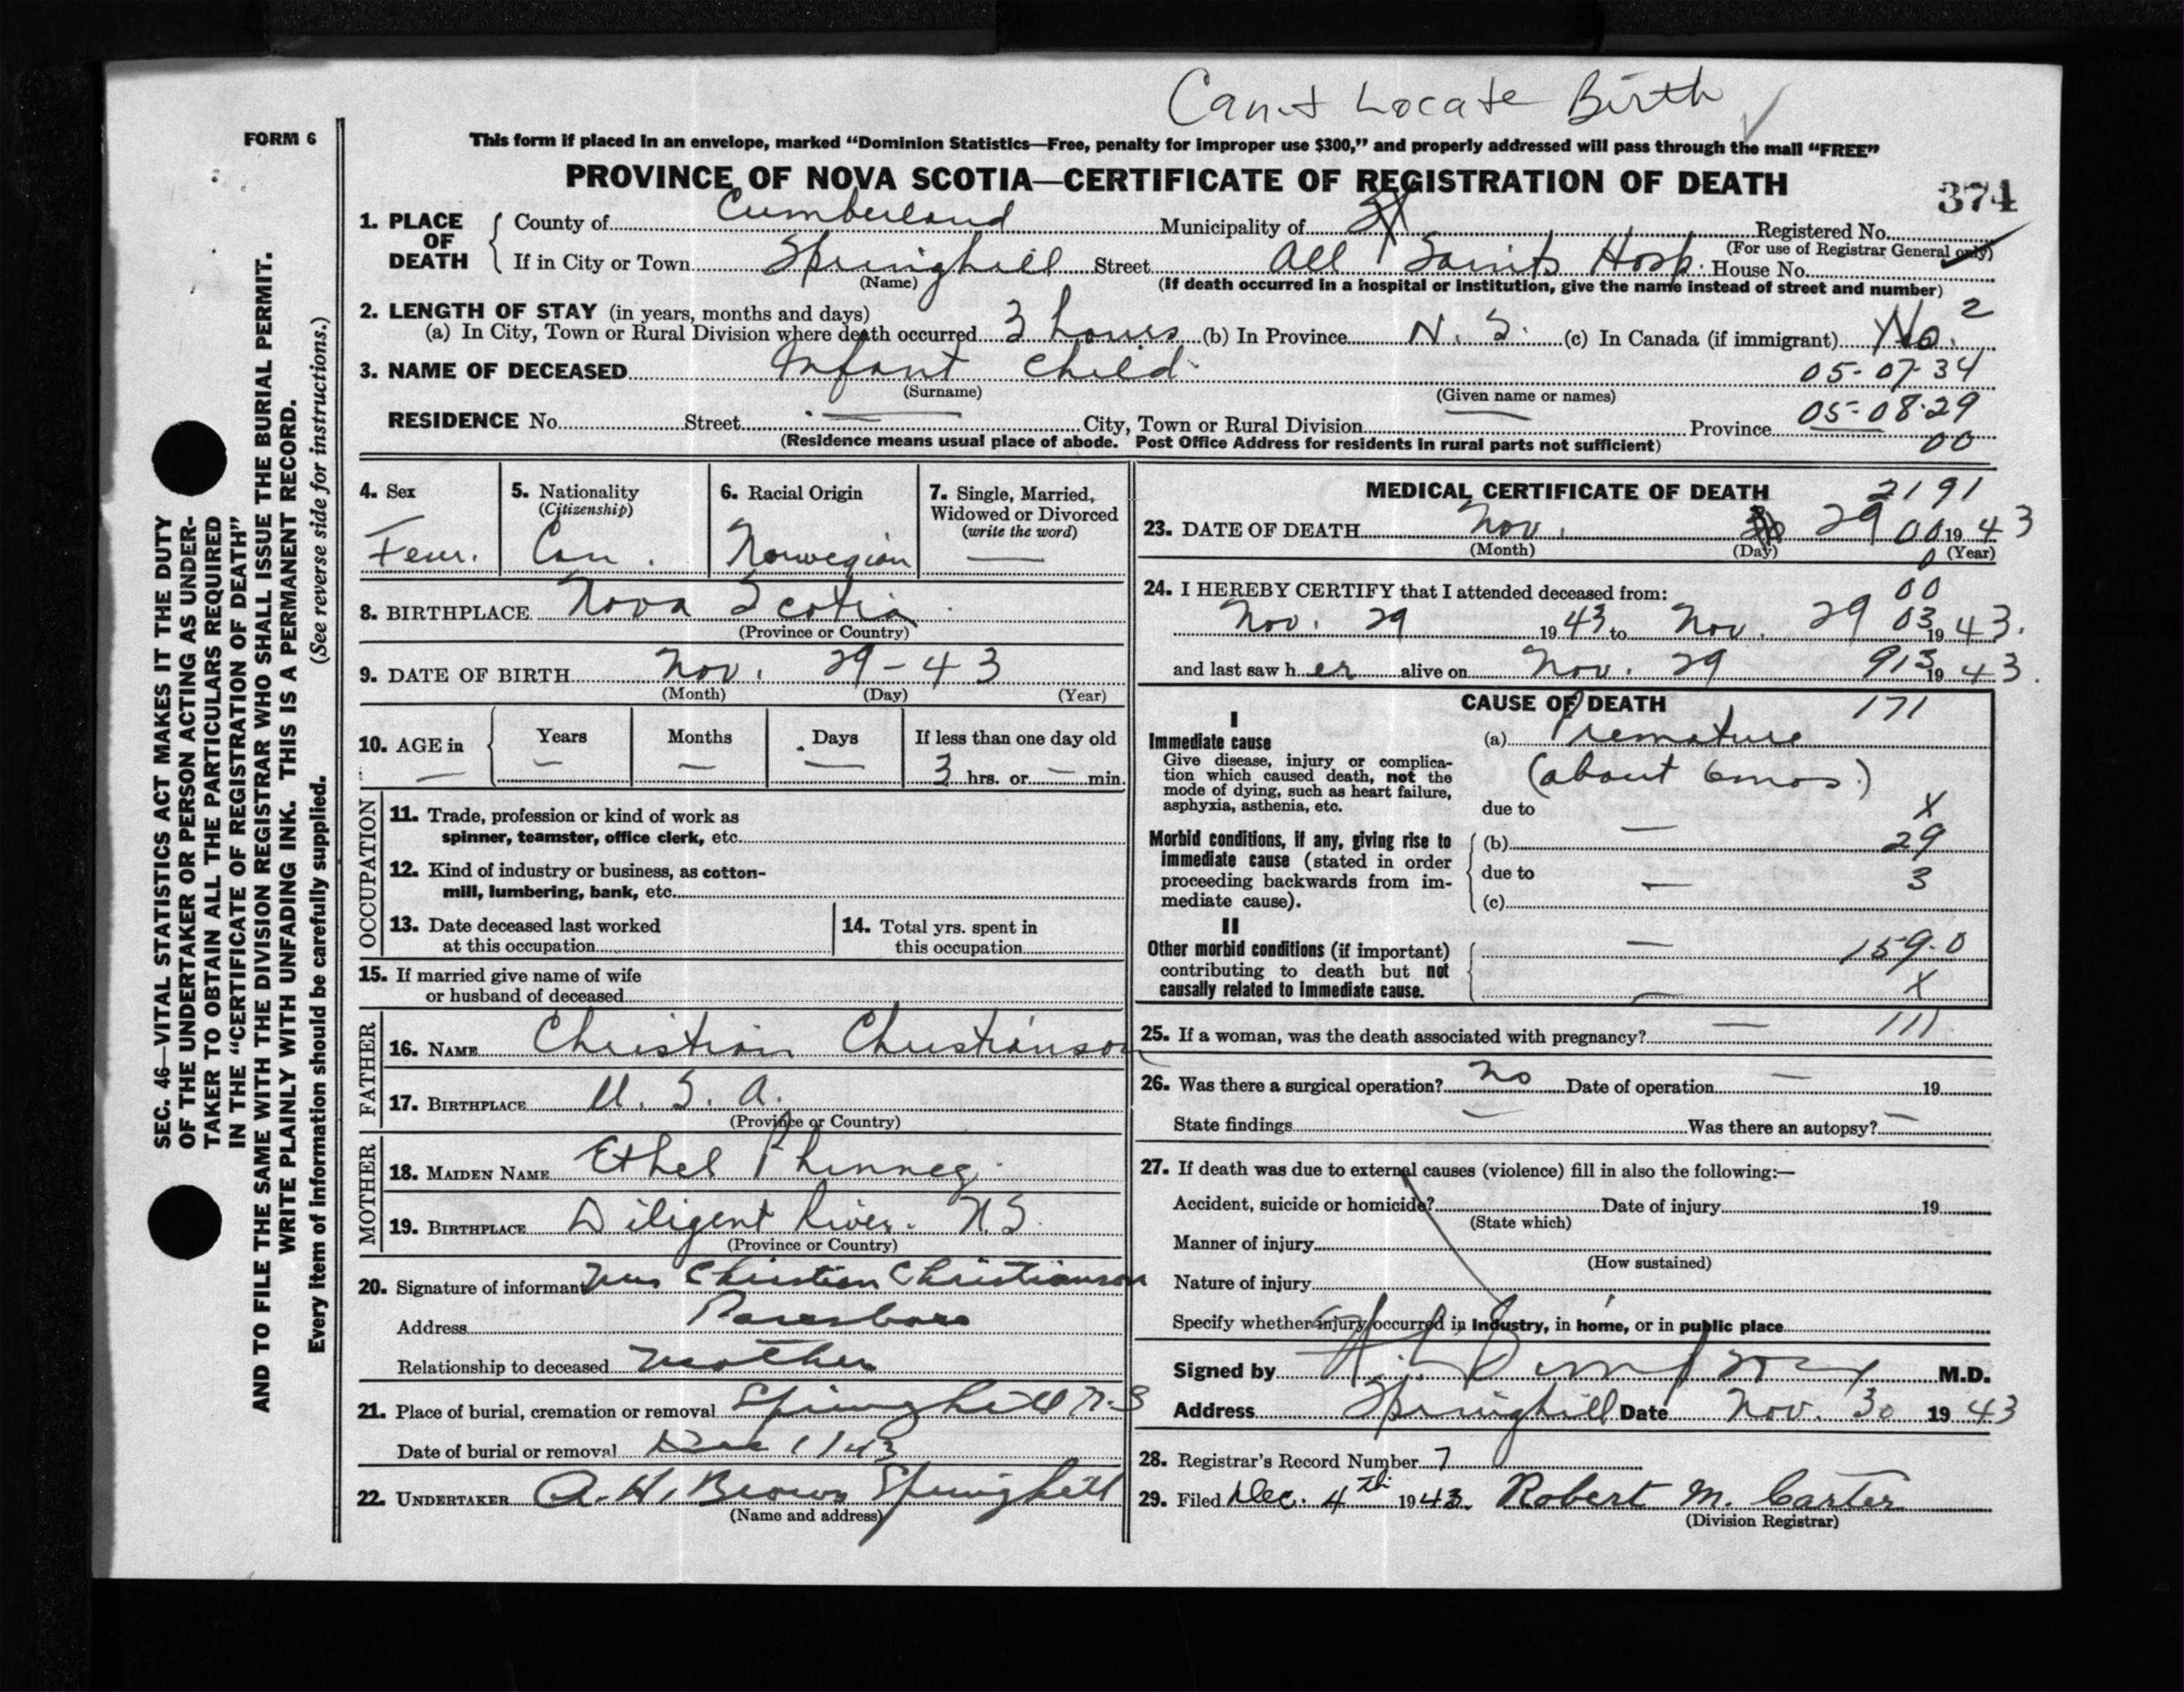 Can't Locate Birth ✓
FORM 6
This form if placed in an envelope, marked "Dominion Statistics—Free, penalty for improper use $300," and properly addressed will pass through the mail "FREE"
PROVINCE OF NOVA SCOTIA—CERTIFICATE OF REGISTRATION OF DEATH
374
1. PLACE OF DEATH
County of Cumberland Municipality of Registered No.
(For use of Registrar General only)
If in City or Town Springhill Street All Saints Hosp. House No.
(Name) (If death occurred in a hospital or institution, give the name instead of street and number)
2. LENGTH OF STAY (in years, months and days) 2
(a) In City, Town or Rural Division where death occurred 3 hours (b) In Province N. S. (c) In Canada (if immigrant) No.
3. NAME OF DECEASED Infant Child 05-07-34
(Surname) (Given name or names)
05-08-29
RESIDENCE No. Street — City, Town or Rural Division — Province
(Residence means usual place of abode. Post Office Address for residents in rural parts not sufficient) 00
4. Sex
Fem.
5. Nationality
(Citizenship)
Can.
6. Racial Origin
Norwegian
7. Single, Married,
Widowed or Divorced
(write the word)
—
8. BIRTHPLACE Nova Scotia
(Province or Country)
9. DATE OF BIRTH Nov. 29-43
(Month) (Day) (Year)
10. AGE in Years Months Days If less than one day old
— — — — 3 hrs. or — min.
OCCUPATION
11. Trade, profession or kind of work as
spinner, teamster, office clerk, etc.
12. Kind of industry or business, as cotton-
mill, lumbering, bank, etc.
13. Date deceased last worked
at this occupation
14. Total yrs. spent in
this occupation
15. If married give name of wife
or husband of deceased
FATHER
16. NAME Christian Christianson
17. BIRTHPLACE U. S. A.
(Province or Country)
MOTHER
18. MAIDEN NAME Ethel Phinney
19. BIRTHPLACE Diligent River. N.S.
(Province or Country)
20. Signature of informant Mrs Christian Christianson
Address Parrsboro
Relationship to deceased Mother
21. Place of burial, cremation or removal Springhill N.S
Date of burial or removal Dec 1/43
22. UNDERTAKER A. H. Brown Springhill
(Name and address)
MEDICAL CERTIFICATE OF DEATH 2191
23. DATE OF DEATH Nov. 29 00 1943
(Month) (Day) (Year)
0
24. I HEREBY CERTIFY that I attended deceased from: 00
Nov. 29 1943 to Nov. 29 03 1943.
and last saw her alive on Nov. 29 913 1943.
CAUSE OF DEATH 171
I
Immediate cause
Give disease, injury or complica-
tion which caused death, not the
mode of dying, such as heart failure,
asphyxia, asthenia, etc.
(a) Premature
(about 6 mos.)
due to X
Morbid conditions, if any, giving rise to
immediate cause (stated in order
proceeding backwards from im-
mediate cause).
(b) — 29
due to 3
(c) —
II
Other morbid conditions (if important)
contributing to death but not
causally related to immediate cause.
— 159.0
— X
25. If a woman, was the death associated with pregnancy? — 111
26. Was there a surgical operation? No Date of operation — 19
State findings — Was there an autopsy? —
27. If death was due to external causes (violence) fill in also the following:—
Accident, suicide or homicide? Date of injury 19
(State which)
Manner of injury
(How sustained)
Nature of injury
Specify whether injury occurred in industry, in home, or in public place
Signed by M.D.
Address Springhill Date Nov. 30 1943
28. Registrar's Record Number 7
29. Filed Dec. 4th 1943. Robert M. Carter
(Division Registrar)
SEC. 46—VITAL STATISTICS ACT MAKES IT THE DUTY
OF THE UNDERTAKER OR PERSON ACTING AS UNDER-
TAKER TO OBTAIN ALL THE PARTICULARS REQUIRED
IN THE "CERTIFICATE OF REGISTRATION OF DEATH"
AND TO FILE THE SAME WITH THE DIVISION REGISTRAR WHO SHALL ISSUE THE BURIAL PERMIT.
WRITE PLAINLY WITH UNFADING INK. THIS IS A PERMANENT RECORD.
Every item of information should be carefully supplied. (See reverse side for instructions.)